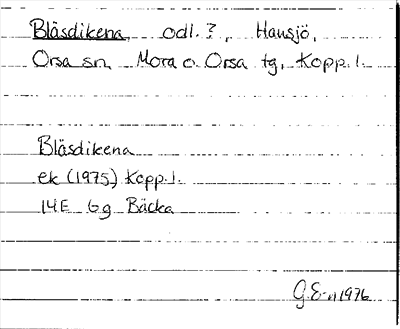 Bläsdikena, odl.?, Hansjö,
Orsa sn. Mora o. Orsa tg, Kopp. l.
Bläsdikena
ek (1975) Kopp. l.
14E 6g Bäcka
G.E-n 1976